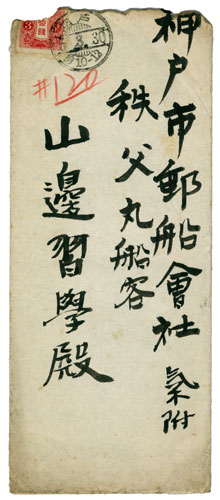 神戸市郵船會社氣附
秩父丸船客
山邊習學殿
#120
3.30